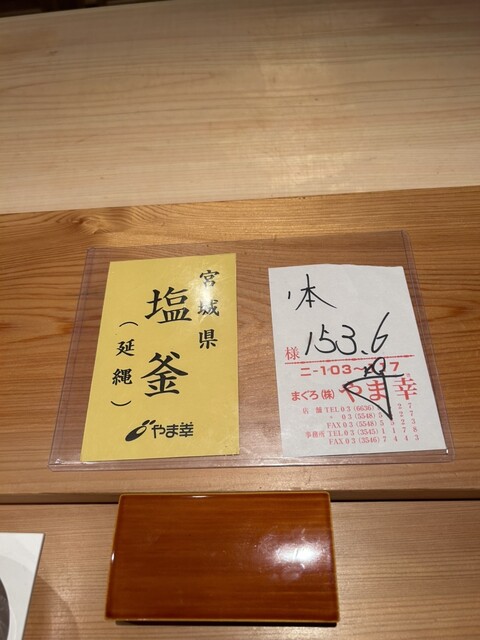 宮城県
塩釜
(延縄)
やま幸
本
様 153.6
ニ-103~
まぐろ(株)やま幸
店舗 TEL03(6636)
〃 03(5548)
FAX03(5548)
事務所 TEL03(3545)1178
FAX03(3546)7443